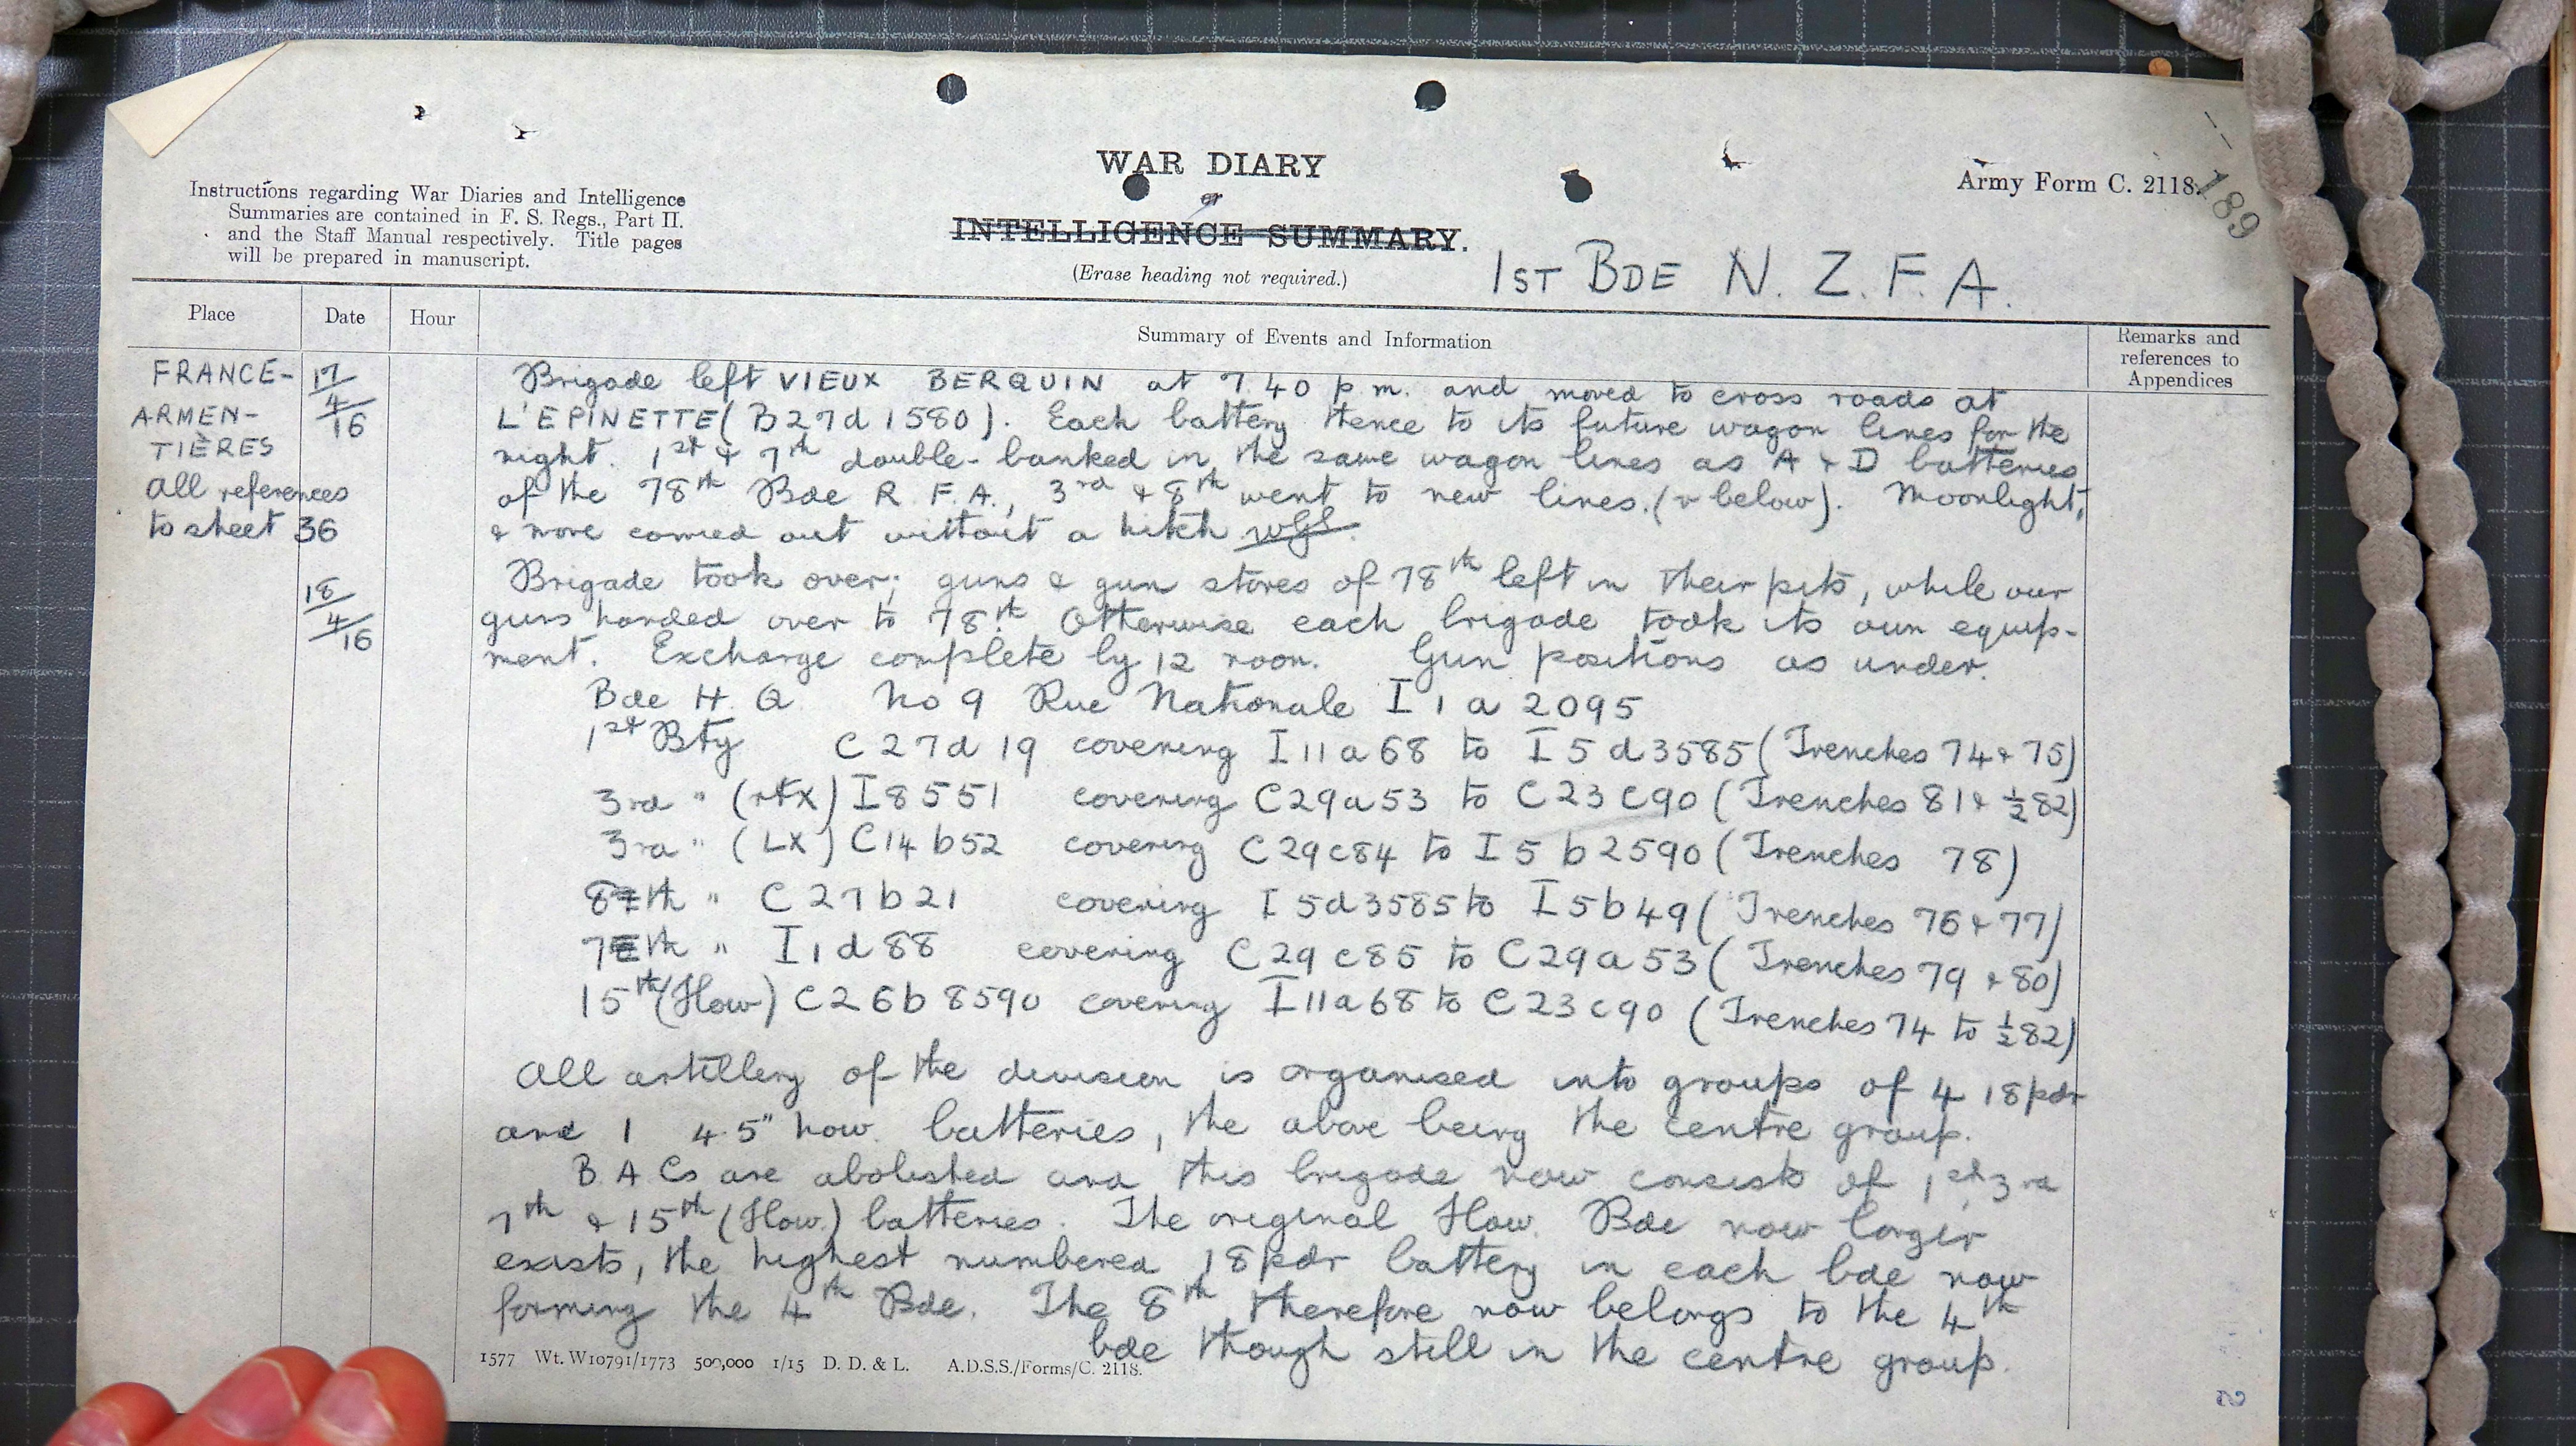 WAR DIARY
or
INTELLIGENCE SUMMARY.
(Erase heading not required.)
Instructions regarding War Diaries and Intelligence
Summaries are contained in F. S. Regs., Part II.
and the Staff Manual respectively. Title pages
will be prepared in manuscript.
Army Form C. 2118.
189
1ST BDE N. Z. F. A.
Place Date Hour Summary of Events and Information Remarks and
references to
Appendices
FRANCE-
ARMEN-
TIÈRES
All references
to sheet 36
17/4/16
Brigade left VIEUX BERQUIN at 7.40 p.m. and moved to cross roads at
L'EPINETTE (B27d 1580). Each battery thence to its future wagon lines for the
night. 1st & 7th double-banked in the same wagon lines as A & D batteries
of the 78th Bde R. F. A., 3rd & 8th went to new lines. (v below). Moonlight,
& move carried out without a hitch
18/4/16
Brigade took over; guns & gun stores of 78th left in their pits, while our
guns handed over to 78th. Otherwise each brigade took its own equip-
ment. Exchange complete by 12 noon. Gun positions as under.
Bde H. Q. No 9 Rue Nationale I 1 a 2095
1st Bty C 27d 19 covering I 11 a 68 to I 5 d 3585 (Trenches 74 & 75)
3rd " (rtx) I8551 covering C29a53 to C23c90 (Trenches 81 & ½82)
3rd " (LX) C14 b52 covering C29c84 to I 5 b 2590 (Trenches 78)
8th " C 27 b 21 covering I 5d3585 to I5b49 (Trenches 76 & 77)
7th " I 1 d 88 covering C29 c85 to C29a53 (Trenches 79 & 80)
15th (How) C26b 8590 covering I 11a68 to C23c90 (Trenches 74 to ½82)
All artillery of the division is organised into groups of 4 18pdr
and 1 4.5" how. batteries, the above being the centre group.
B A Cs are abolished and this brigade now consists of 1st, 3rd
7th & 15th (How.) batteries. The original How. Bde now longer
exists, the highest numbered 18pdr battery in each bde now
forming the 4th Bde. The 8th therefore now belongs to the 4th
bde though still in the centre group.
1577 Wt. W10791/1773 500,000 1/15 D. D. & L. A.D.S.S./Forms/C. 2118.